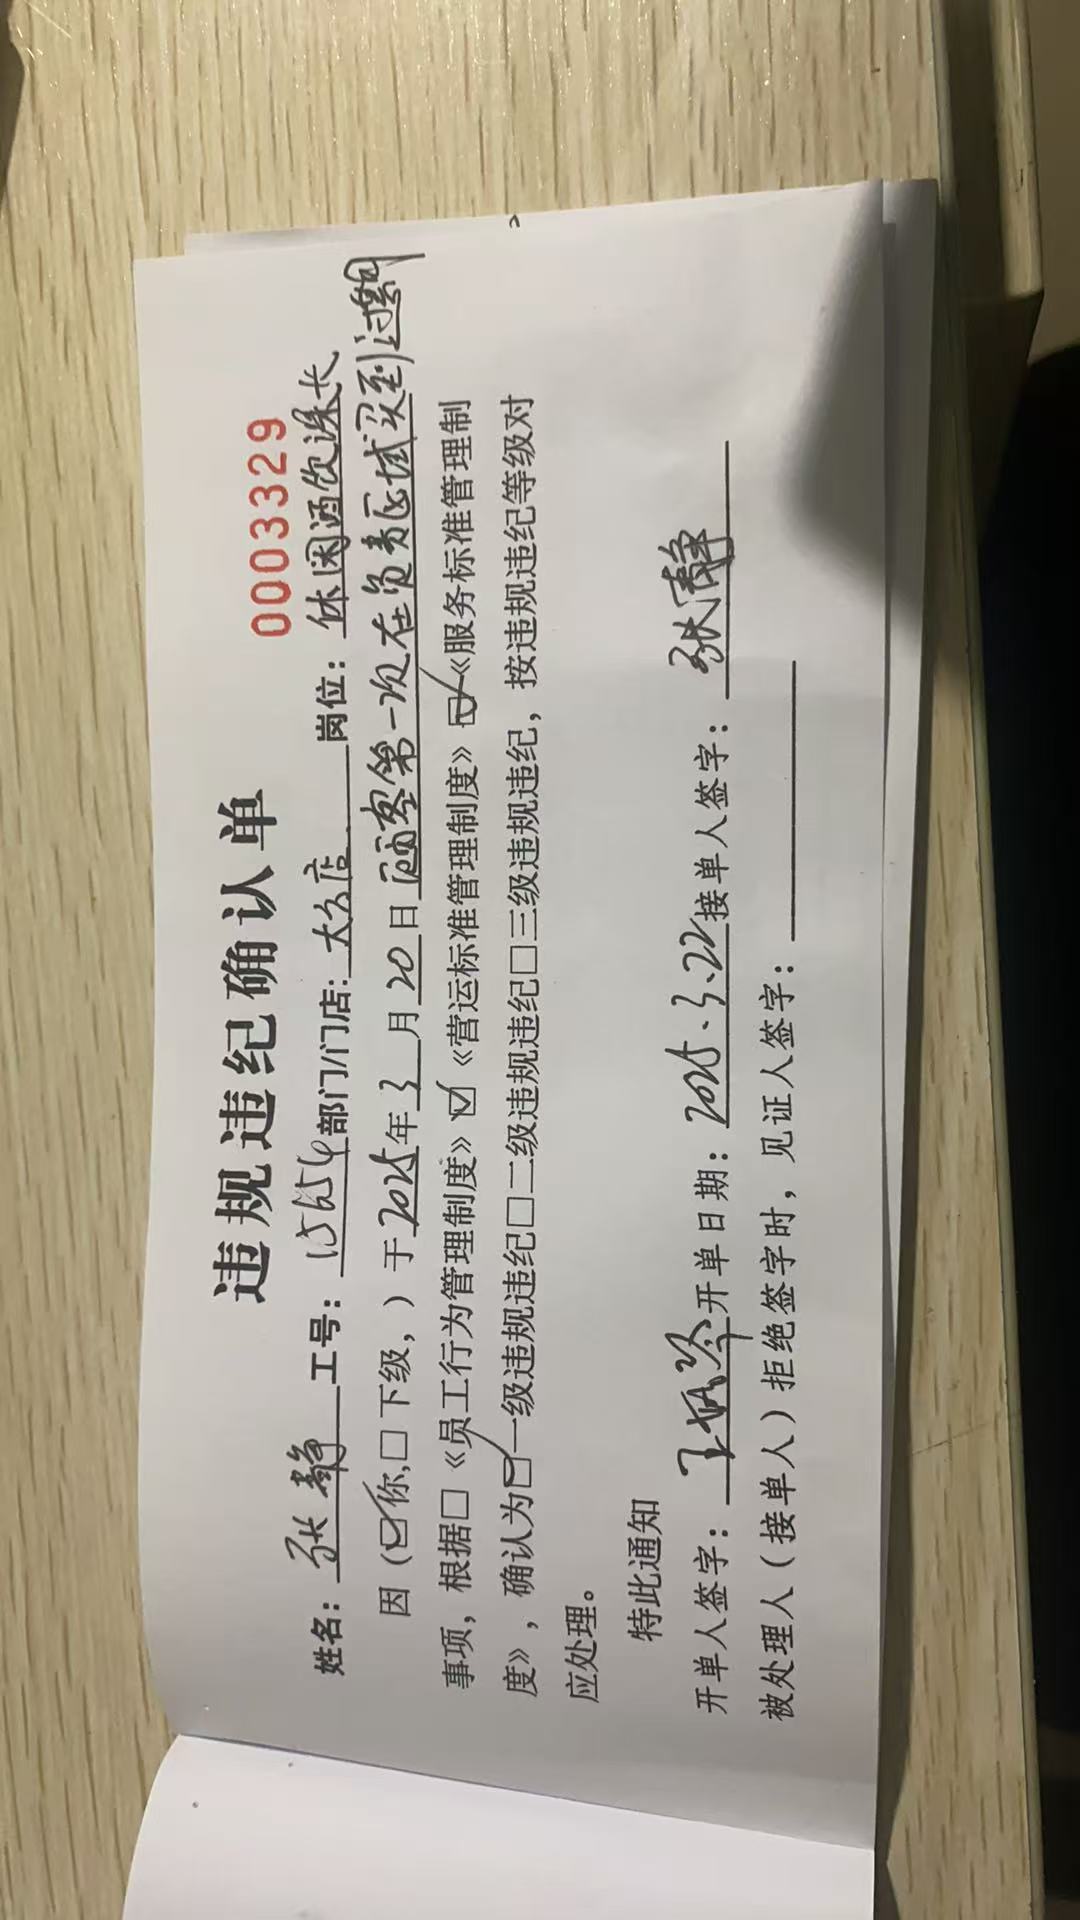 违规违纪确认单
0003329
姓名：张静 工号：15654 部门/门店：大么店 岗位：休闲酒饮课长
因（☑你，□下级，）于2025年3月20日 顾客第一次在负责区域买到过期
事项，根据□《员工行为管理制度》☑《营运标准管理制度》☑《服务标准管理制
度》，确认为☑一级违规违纪□二级违规违纪□三级违规违纪，按违规违纪等级对
应处理。
特此通知
开单人签字： 开单日期：2025.3.22 接单人签字：张静
被处理人（接单人）拒绝签字时，见证人签字：